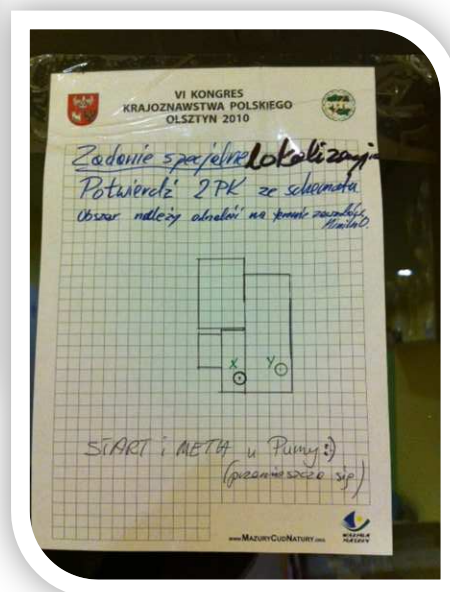 VI KONGRES
KRAJOZNAWSTWA POLSKIEGO
OLSZTYN 2010
Zadanie specjalne Lokalizacja
Potwierdź 2 PK ze schematu
Obszar należy odnaleźć na terenie zawodów
X Y
START i META u Pumy :)
(przemieszcza się)
www.MAZURYCUDNATURY.org